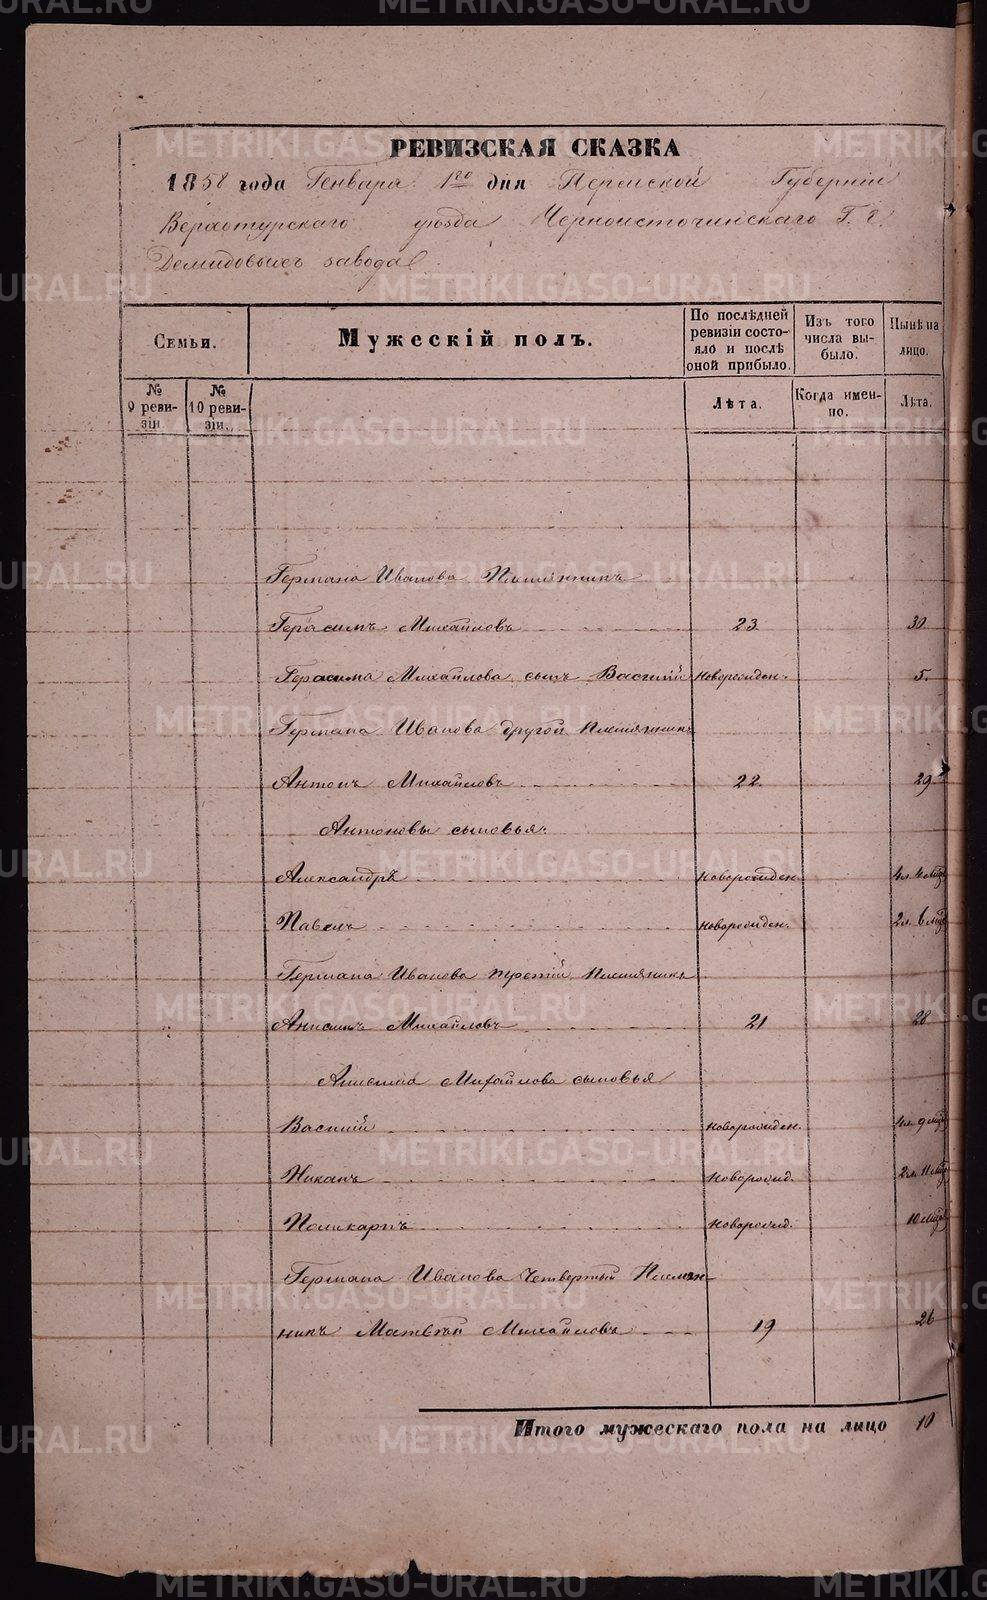 РЕВИЗСКАЯ СКАЗКА
1858 года Генваря 1го дня Пермской Губернии
Верхотурскаго уѣзда Черноисточинскаго Г. г.
Демидовыхъ завода
Семьи.
Мужескій полъ.
По послѣдней ревизіи состояло и послѣ оной прибыло.
Изъ того числа выбыло.
Нынѣ на лицо.
№ 9 ревизіи.
№ 10 ревизіи.
Лѣта.
Когда именно.
Лѣта.
Германа Иванова Племянникъ
Герасимъ Михайловъ 23 30
Герасима Михайлова сынъ Василій новорожден. 5.
Германа Иванова другой Племянникъ
Антонъ Михайловъ 22. 29
Антоновы сыновья:
Александръ новорожден. 4 л. 4 мѣс
Павелъ новорожден. 2 л. 6 мѣс
Германа Иванова третій Племяникъ
Анисимъ Михайловъ 21 28
Анисима Михайлова сыновья
Василій новорожден. 4 л. 9 мѣс
Никонъ новорожд. 2 л. 11 мѣс
Поликарпъ новорожд. 10 мѣс
Германа Иванова четвертый Племян-
никъ Матвѣй Михайловъ 19 26
Итого мужескаго пола на лицо 10
METRIKI.GASO-URAL.RU